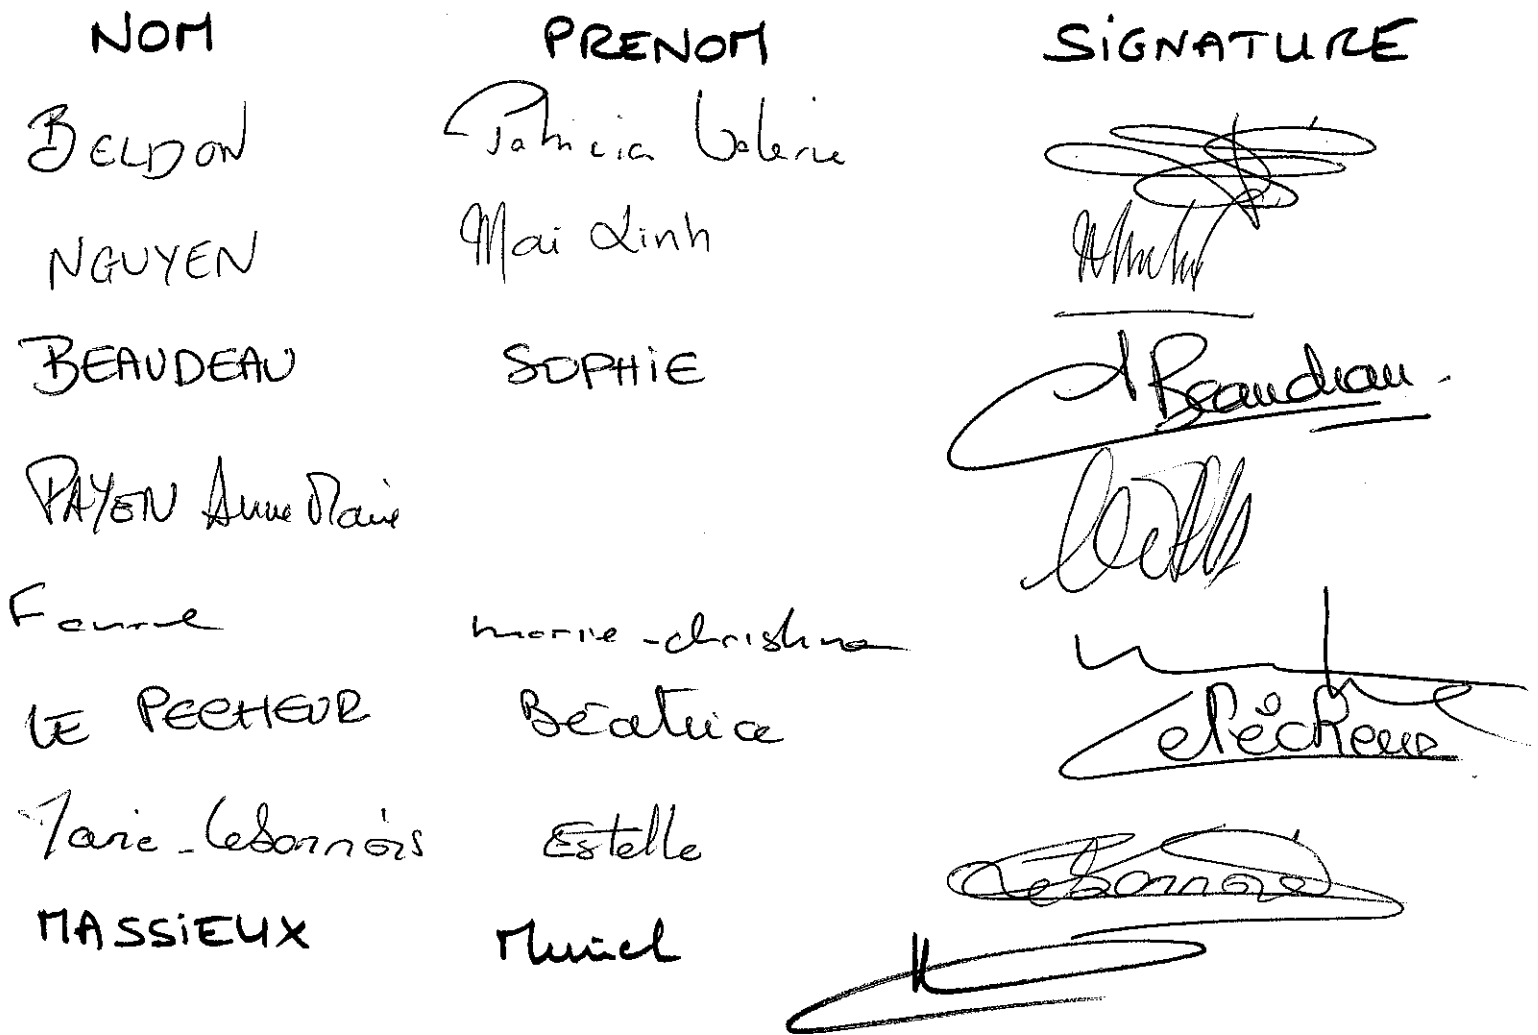 NOM PRENOM SIGNATURE
BELDON Patricia Valerie
NGUYEN Mai Linh
BEAUDEAU SOPHIE Beaudeau
PAYEN Anne Marie
marie-christine
LE PECHEUR Béatrice le Pécheur
Marie-Lebonnois Estelle Lebonnois
MASSIEUX Muriel